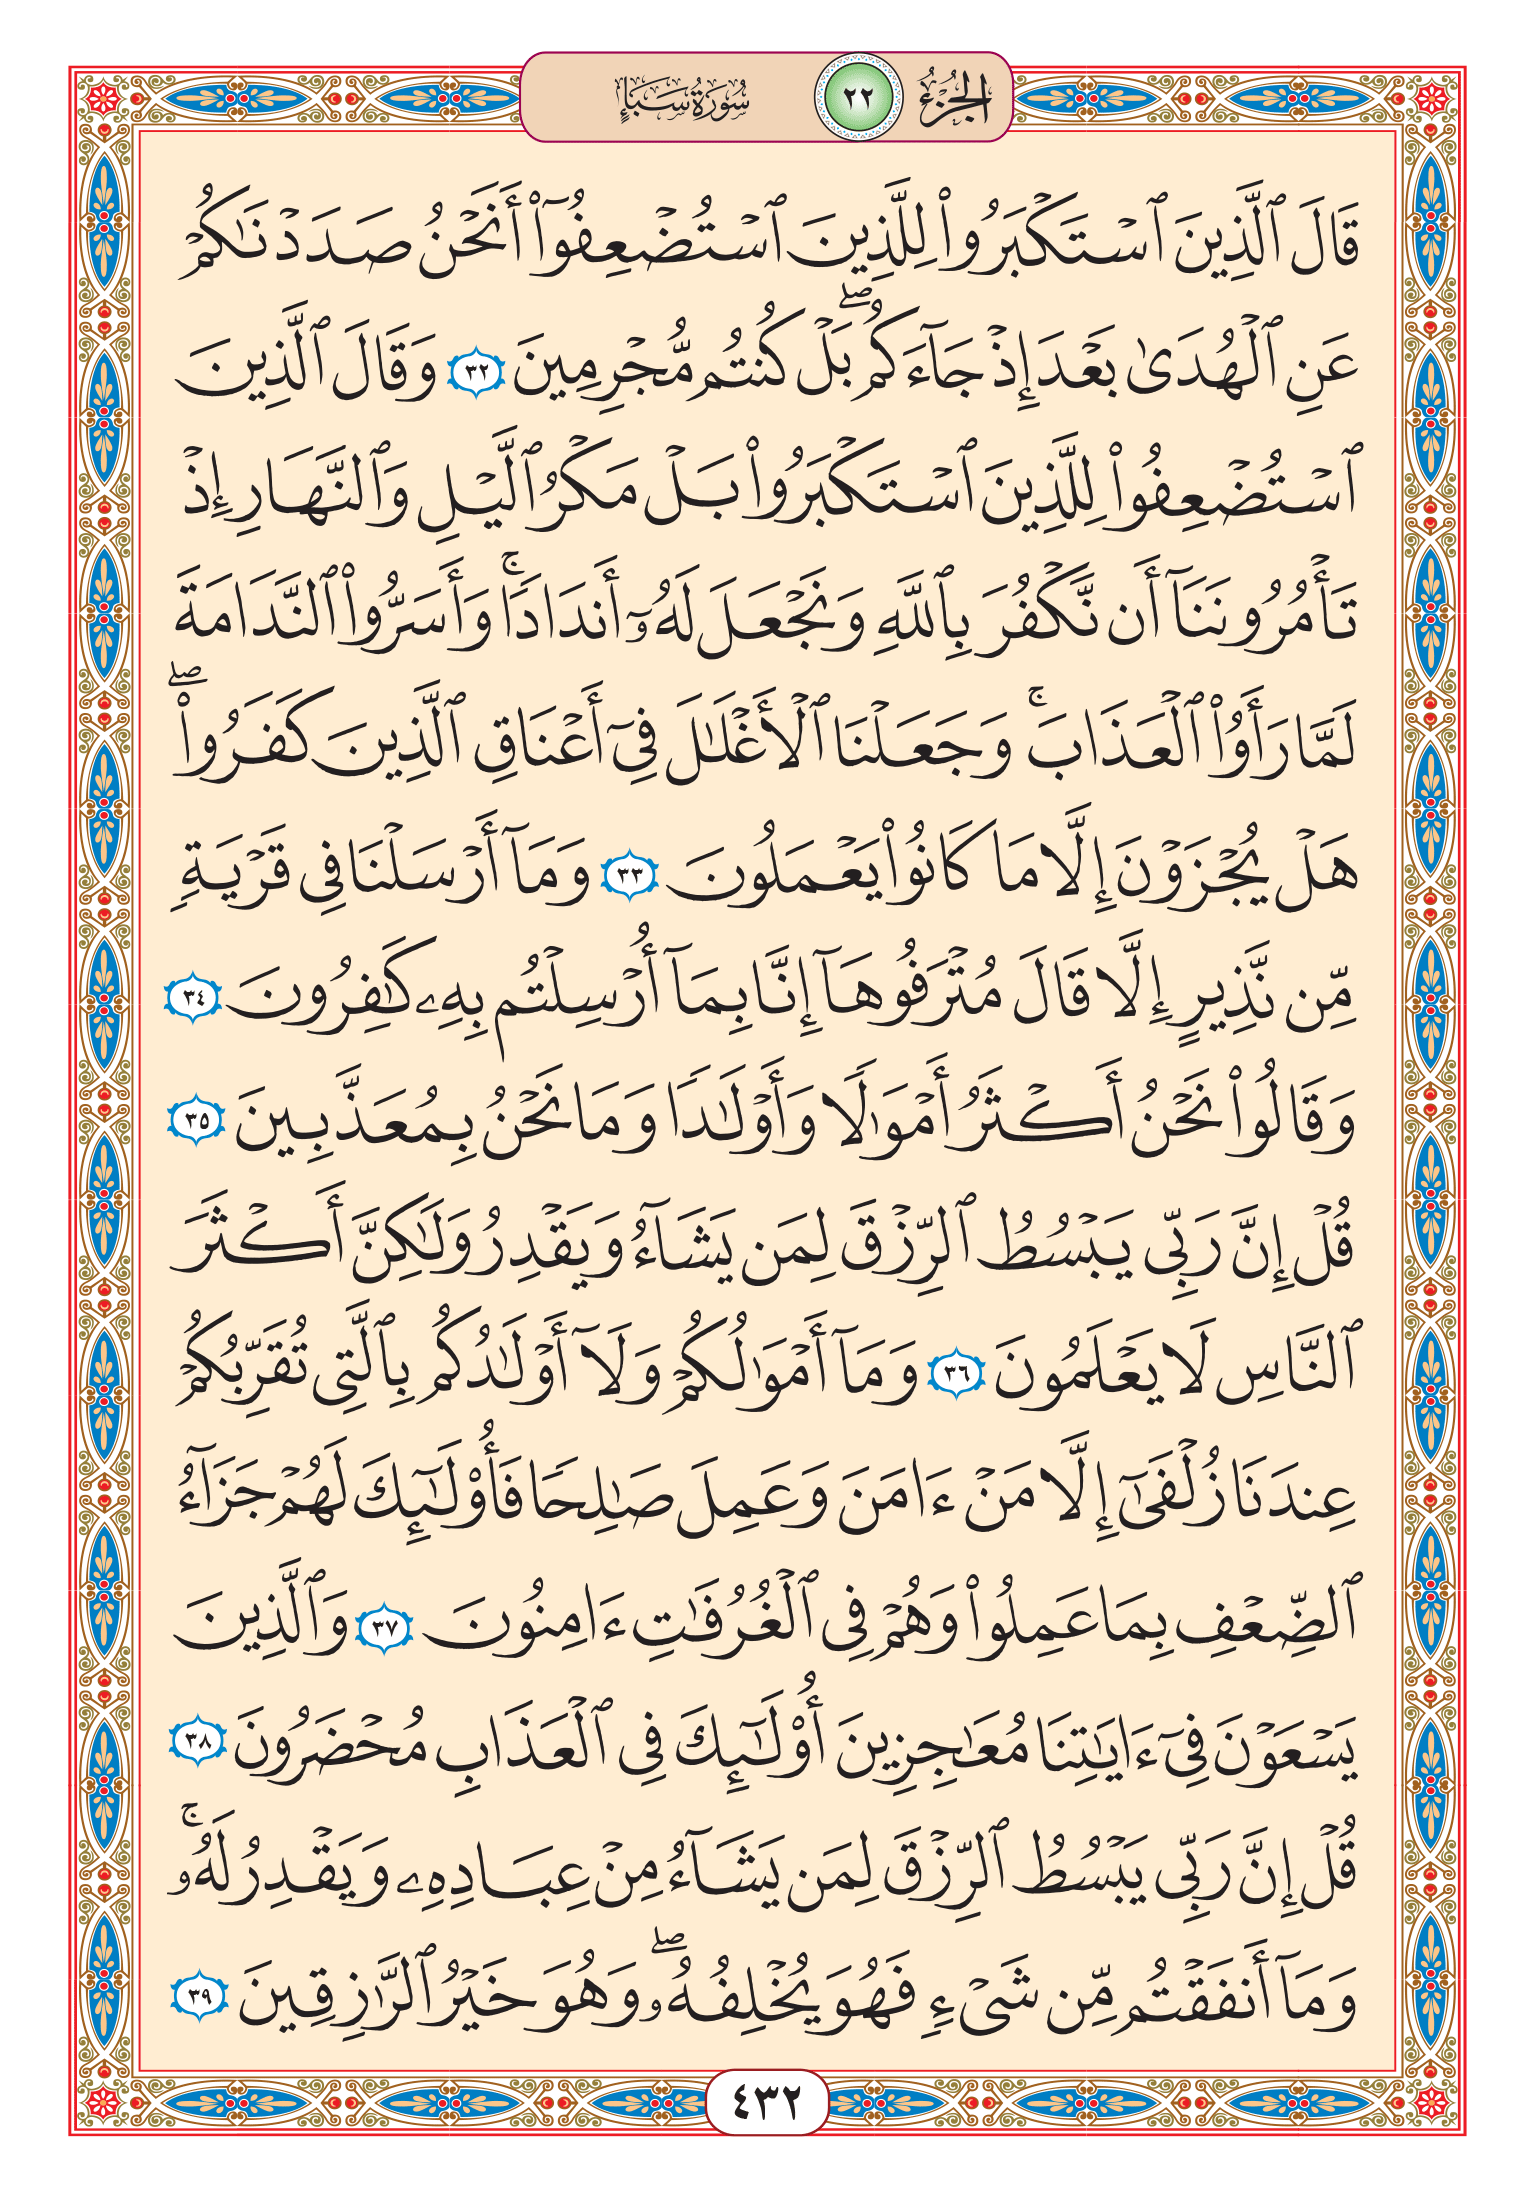 الجزء ٢٢ سورة سبإ
قَالَ ٱلَّذِينَ ٱسۡتَكۡبَرُواْ لِلَّذِينَ ٱسۡتُضۡعِفُوٓاْ أَنَحۡنُ صَدَدۡنَٰكُمۡ
عَنِ ٱلۡهُدَىٰ بَعۡدَ إِذۡ جَآءَكُمۖ بَلۡ كُنتُم مُّجۡرِمِينَ ٣٢ وَقَالَ ٱلَّذِينَ
ٱسۡتُضۡعِفُواْ لِلَّذِينَ ٱسۡتَكۡبَرُواْ بَلۡ مَكۡرُ ٱلَّيۡلِ وَٱلنَّهَارِ إِذۡ
تَأۡمُرُونَنَآ أَن نَّكۡفُرَ بِٱللَّهِ وَنَجۡعَلَ لَهُۥٓ أَندَادٗاۚ وَأَسَرُّواْ ٱلنَّدَامَةَ
لَمَّا رَأَوُاْ ٱلۡعَذَابَۚ وَجَعَلۡنَا ٱلۡأَغۡلَٰلَ فِيٓ أَعۡنَاقِ ٱلَّذِينَ كَفَرُواْۖ
هَلۡ يُجۡزَوۡنَ إِلَّا مَا كَانُواْ يَعۡمَلُونَ ٣٣ وَمَآ أَرۡسَلۡنَا فِي قَرۡيَةٖ
مِّن نَّذِيرٍ إِلَّا قَالَ مُتۡرَفُوهَآ إِنَّا بِمَآ أُرۡسِلۡتُم بِهِۦ كَٰفِرُونَ ٣٤
وَقَالُواْ نَحۡنُ أَكۡثَرُ أَمۡوَٰلٗا وَأَوۡلَٰدٗا وَمَا نَحۡنُ بِمُعَذَّبِينَ ٣٥
قُلۡ إِنَّ رَبِّي يَبۡسُطُ ٱلرِّزۡقَ لِمَن يَشَآءُ وَيَقۡدِرُ وَلَٰكِنَّ أَكۡثَرَ
ٱلنَّاسِ لَا يَعۡلَمُونَ ٣٦ وَمَآ أَمۡوَٰلُكُمۡ وَلَآ أَوۡلَٰدُكُم بِٱلَّتِي تُقَرِّبُكُمۡ
عِندَنَا زُلۡفَىٰٓ إِلَّا مَنۡ ءَامَنَ وَعَمِلَ صَٰلِحٗا فَأُوْلَٰٓئِكَ لَهُمۡ جَزَآءُ
ٱلضِّعۡفِ بِمَا عَمِلُواْ وَهُمۡ فِي ٱلۡغُرُفَٰتِ ءَامِنُونَ ٣٧ وَٱلَّذِينَ
يَسۡعَوۡنَ فِيٓ ءَايَٰتِنَا مُعَٰجِزِينَ أُوْلَٰٓئِكَ فِي ٱلۡعَذَابِ مُحۡضَرُونَ ٣٨
قُلۡ إِنَّ رَبِّي يَبۡسُطُ ٱلرِّزۡقَ لِمَن يَشَآءُ مِنۡ عِبَادِهِۦ وَيَقۡدِرُ لَهُۥۚ
وَمَآ أَنفَقۡتُم مِّن شَيۡءٖ فَهُوَ يُخۡلِفُهُۥۖ وَهُوَ خَيۡرُ ٱلرَّٰزِقِينَ ٣٩
٤٣٢